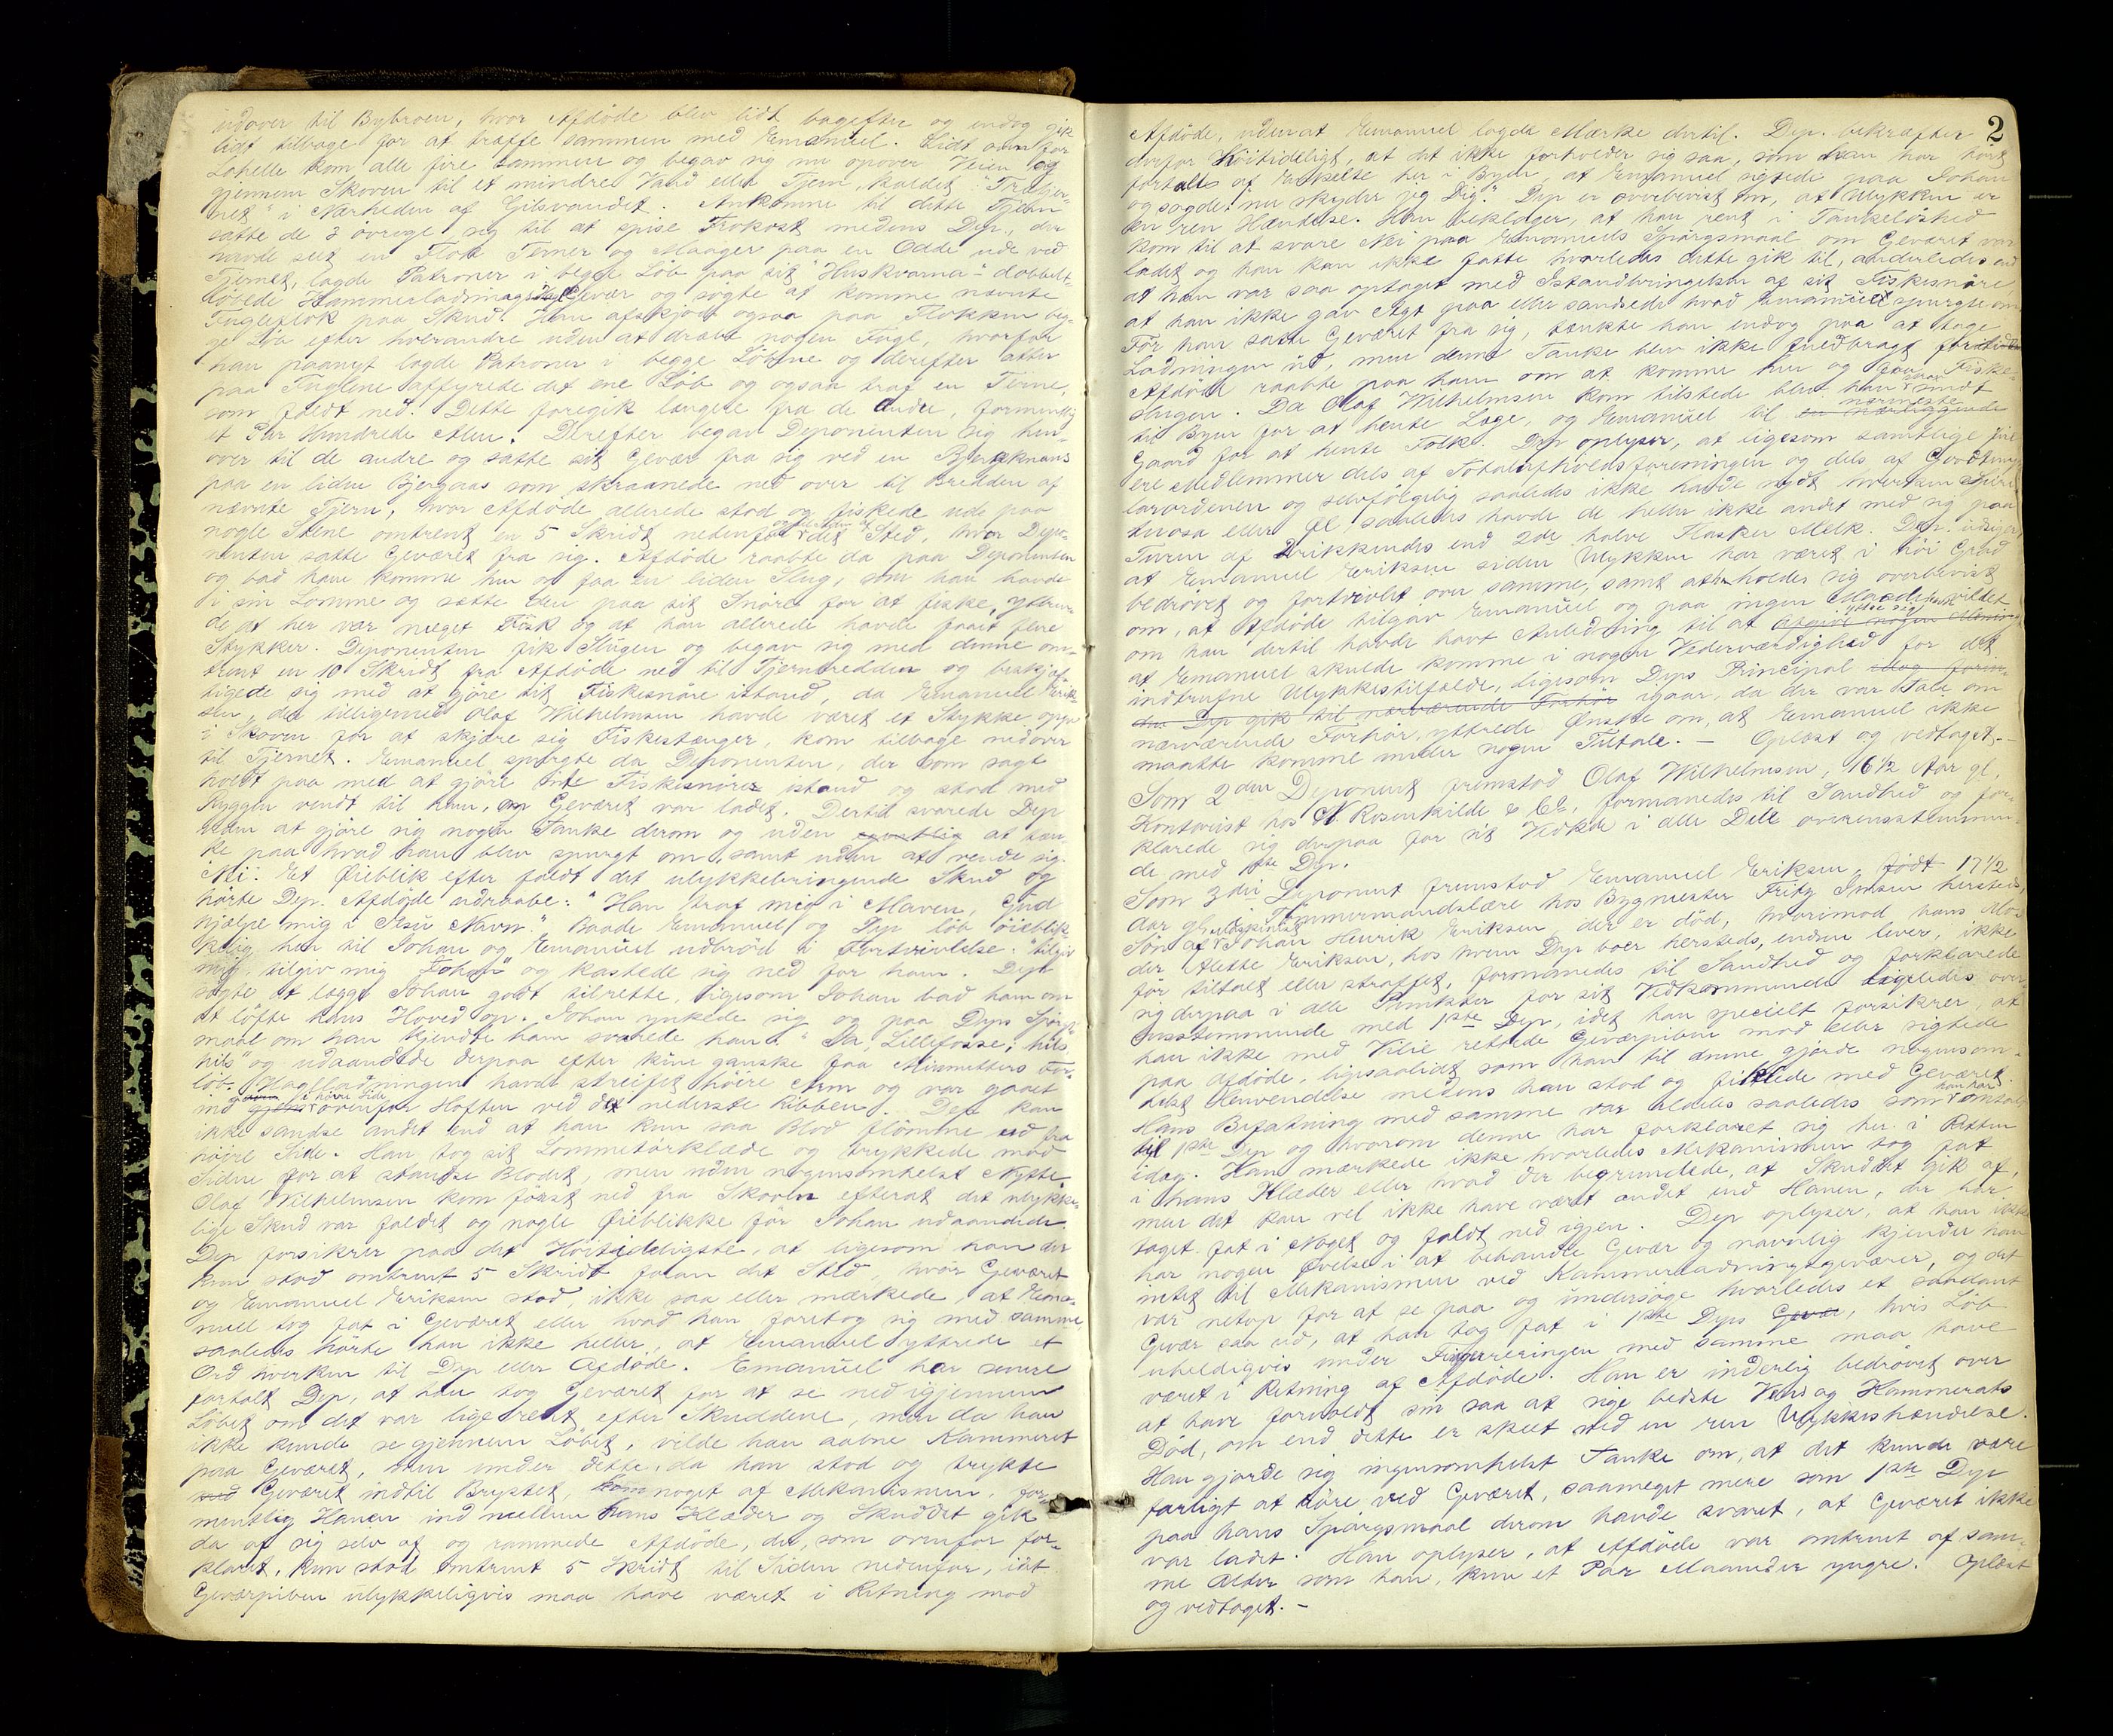 udover til Bybroen, hvor Afdöde blev lidt bagefter og endog gik
lidt tilbage for at træffe sammen med Emanuel. Lidt ovenfor
Lohelle kom alle fire sammen og begav sig nu opover Veien og
gjennem Skoven til et mindre Vand eller Tjern, kaldet
net" i Nærheden af Gilsvandet. Ankomne til dette Tjern
satte de 3 övrige sig til at spise Frokost medens Dep., der
havde seet en Flok Terner og Maager paa en Odde ude ved
Tjernet, lagde Patroner i begge Löb paa sit "Huskvarna" dobbelt-
löbede Kammerladnings Gevær og sögte at komme nævnte
Fugleflok paa Skud. Han afskjöd ogsaa paa Flokken beg-
ge Löb efter hverandre uden at dræbe nogen Fugl, hvorfor
han paanyt lagde Patroner i begge Löbene og derefter atter
paa Fuglene affyrede det ene Löb og ogsaa traf en Terne,
som faldt ned. Dette foregik længere fra de andre, formentlig
et Par Hundrede Alen. Derefter begav Deponenten sig hen-
over til de andre og satte sit Gevær fra sig ved en Bjergknaus
paa en liden Bjergaas som skraanede ned over til Bredden af
nævnte Tjern, hvor Afdöde allerede stod og fiskede ude paa
nogle Stene omtrent en 5 Skridt nedenfor det Sted, hvor Depo-
nenten satte Geværet fra sig. Afdöde raabte da paa Deponenten
og bad ham komme hen og faa en liden Slug, som han havde
i sin Lomme og sætte den paa sit Snöre for at fiske, yttren-
de at her var meget Fisk og at han allerede havde faaet flere
Stykker. Deponenten fik Slugen og begav sig med denne om-
trent en 10 Skridt fra Afdöde ned til Tjernbredden og beskjæf-
tigede sig med at gjöre sit Fiskesnöre istand, da Emanuel Erik-
sen, der tilligemed Olaf Wilhelmsen havde været et Stykke oppe
i Skoven for at skjære sig Fiskestænger, kom tilbage nedover
til Tjernet. Emanuel spurgte da Deponenten, der som sagt
holdt paa med at gjöre sit Fiskesnöre istand og stod med
Ryggen vendt til ham, om Geværet var ladet. Dertil svarede Dep
uden at gjöre sig nogen Tanke derom og uden egentlig at tæn-
ke paa hvad han blev spurgt om, samt uden at vende sig
Nei. Et Öieblik efter faldt det ulykkebringende Skud og
hörte Dep. Afdöde udraabe: "Han traf mig i Maven, Gud
hjælpe mig i Jesu Navn". Baade Emanuel og Dep löb öieblik-
kelig hen til Johan og Emanuel udbröd i Fortvivlelse: "tilgiv
mig, tilgiv mig Johan" og kastede sig ned for ham. Dep
sögte at lægge Johan godt tilrette, ligesom Johan bad ham om
at löfte hans Hoved op. Johan ynkede sig og paa Deps Spörgs-
maal om han kjendte ham svarede han: "Ja, Lillefosse; hils
hils" og udaandede derpaa efter kun ganske faa Minutters For-
löb. Hagelladningen havde streifet höire Arm og var gaaet
ind i höire Side ovenfor Hoften ved det nederste Ribben. Dep kan
ikke sandse andet end at han kun saa Blod flömme ud fra
höire Side. Han tog sit Lommetörklæde og trykkede mod
Siden for at standse Blodet, men uden nogensomhelst Nytte.
Olaf Wilhelmsen kom först ned fra Skoven efterat det ulykke-
lige Skud var faldet og nogle Öieblikke för Johan udaandede.
Dep forsikrer paa det Höitideligste, at ligesom han der
kun stod omtrent 5 Skridt foran det Sted, hvor Geværet
og Emanuel Eriksen stod, ikke saa eller mærkede, at Ema-
nuel tog fat i Geværet eller hvad han foretog sig med samme
saaledes hörte han ikke heller, at Emanuel yttrede et
Ord hverken til Dep eller Afdöde. Emanuel har senere
fortalt Dep, at han tog Geværet for at se ned igjennem
Löbet om det var lige rent efter Skuddene, men da han
ikke kunde se gjennem Löbet, vilde han aabne Kammeret
paa Geværet, men under dette, da han stod og trykte
med Geværet indtil Brystet, kom noget af Mekanismen, for-
mentlig Hanen ind mellem hans Klæder og Skuddet gik
da af sig selv af og rammede Afdöde, der, som ovenfor for-
klaret, kun stod omtrent 5 Skridt til Siden nedenfor, idet
Geværpiben ulykkeligvis maa have været i Retning mod
2
Afdöde, uden at Emanuel lagde Mærke dertil. Dep. bekræfter
derfor Höitideligt, at det ikke forholder sig saa, som han har hört
fortalts af Enkelte her i Byen, at Emanuel sigtede paa Johan
og sagde: nu skyder jeg Dig". Dep er overbevist om, at Ulykken er
en ren Hændelse. Han beklager, at han rent i Tankelöshed
kom til at svare Nei paa Emanuels Spörgsmaal om Geværet var
ladet og han kan ikke fatte hvorledes dette gik til, anderledes end
at han var saa optaget med Istandbringelsen af sit Fiskesnöre,
at han ikke gav Agt paa eller sandsede hvad Emanuel spurgte om.
För han satte Geværet fra sig, tænkte han endog paa at tage
Ladningen ud, men denne Tanke blev ikke fuldbragt
Afdöde raabte paa ham om at komme hen og faa Fiske-
slugen. Da Olaf Wilhelmsen kom tilstede blev han strax sendt
til Byen for at hente Læge, og Emanuel til en nærliggende nærmeste
Gaard for at hente Folk. Dep oplyser, at ligesom samtlige fire
ere Medlemmer dels af Totalafholdsforeningen og dels af Goodtemp-
larordenen og selvfölgelig saaledes ikke havde nydt hverken Spiri-
tuosa eller Öl, saaledes havde de heller ikke andet med sig paa
Turen af Drikkendes end 2de halve Flasker Melk. Dep. udsiger
at Emanuel Eriksen siden Ulykken har været i höi Grad
bedrövet og fortvivlet over samme, samt at han holder sig overbevist
om, at Afdöde tilgav Emanuel og paa ingen Maade vilde
om han dertil havde havt Anledning til at afgive nogen
at Emanuel skulde komme i nogen Viderværdighed for det
indtrufne Ulykkestilfælde, ligesom Deps Principal
Dep gik til nærværende Forhör igaar, da der var Tale om
nærværende Forhör, yttrede Ønske om, at Emanuel ikke
maatte komme under nogen Tiltale. – Oplæst og vedtaget. –
Som 2den Deponent fremstod Olaf Wilhelmsen, 16 1/2 Aar gl
Kontorist hos N. Rosenkilde & Co, formanedes til Sandhed og for-
klarede sig derpaa for sit Vedkde i alle Dele overensstemmen-
de med 1ste Dep.
Som 3die Deponent fremstod Emanuel Eriksen, födt 17 1/2
Aar gl, i Tömmermandslære hos Bygmester Fritz Imsen hersteds,
Sön af Johan Henrik Eriksen, der er död, hvorimod hans Mo-
der Alette Eriksen, hos hvem Dep boer hersteds, endnu lever, ikke
för tiltalt eller straffet, formanedes til Sandhed og forklarede
sig derpaa i alle Punkter for sit Vedkommende ligeledes over-
ensstemmende med 1ste Dep, idet han specielt forsikrer, at
han ikke med Vilie rettede Geværpiben mod eller sigtede
paa Afdöde, ligesaalidt som han til denne gjorde nogensom-
helst Henvendelse medens han stod og fiklede med Geværet.
Hans Befatning med samme var aldeles saaledes som han har omtalt
til 1ste Dep og hvorom denne har forklaret sig her i Retten
idag. Han mærkede ikke hvorledes Mekanismen tog fat
i hans Klæder eller hvad der begrundede, at Skuddet gik af,
men det kan vel ikke have været andet end Hanen, der har
taget fat i Noget og faldt ned igjen. Dep oplyser, at han ikke
har nogen Övelse i at behandle Gevær og navnlig kjender han
intet til Mekanismen ved Kammerladningsgeværer, og det
var netop for at se paa og undersöge hvorledes et saadant
Gevær saa ud, at han tog fat i 1ste Deps Gevær, hvis Löb
uheldigvis under Fingereringen med samme maa have
været i Retning af Afdöde. Han er inderlig bedrövet over
at have forvoldt sin saa at sige bedste Vens og Kammerats
Död, om end dette er skeet ved en ren Ulykkeshændelse.
Han gjorde sig ingensomhelst Tanke om, at det kunde være
farligt at röre ved Geværet, saameget mere som 1ste Dep
paa hans Spörgsmaal derom havde svaret, at Geværet ikke
var ladet. Han oplyser, at Afdöde var omtrent af sam-
me Alder som han, kun et Par Maaneder yngre. Oplæst
og vedtaget. –